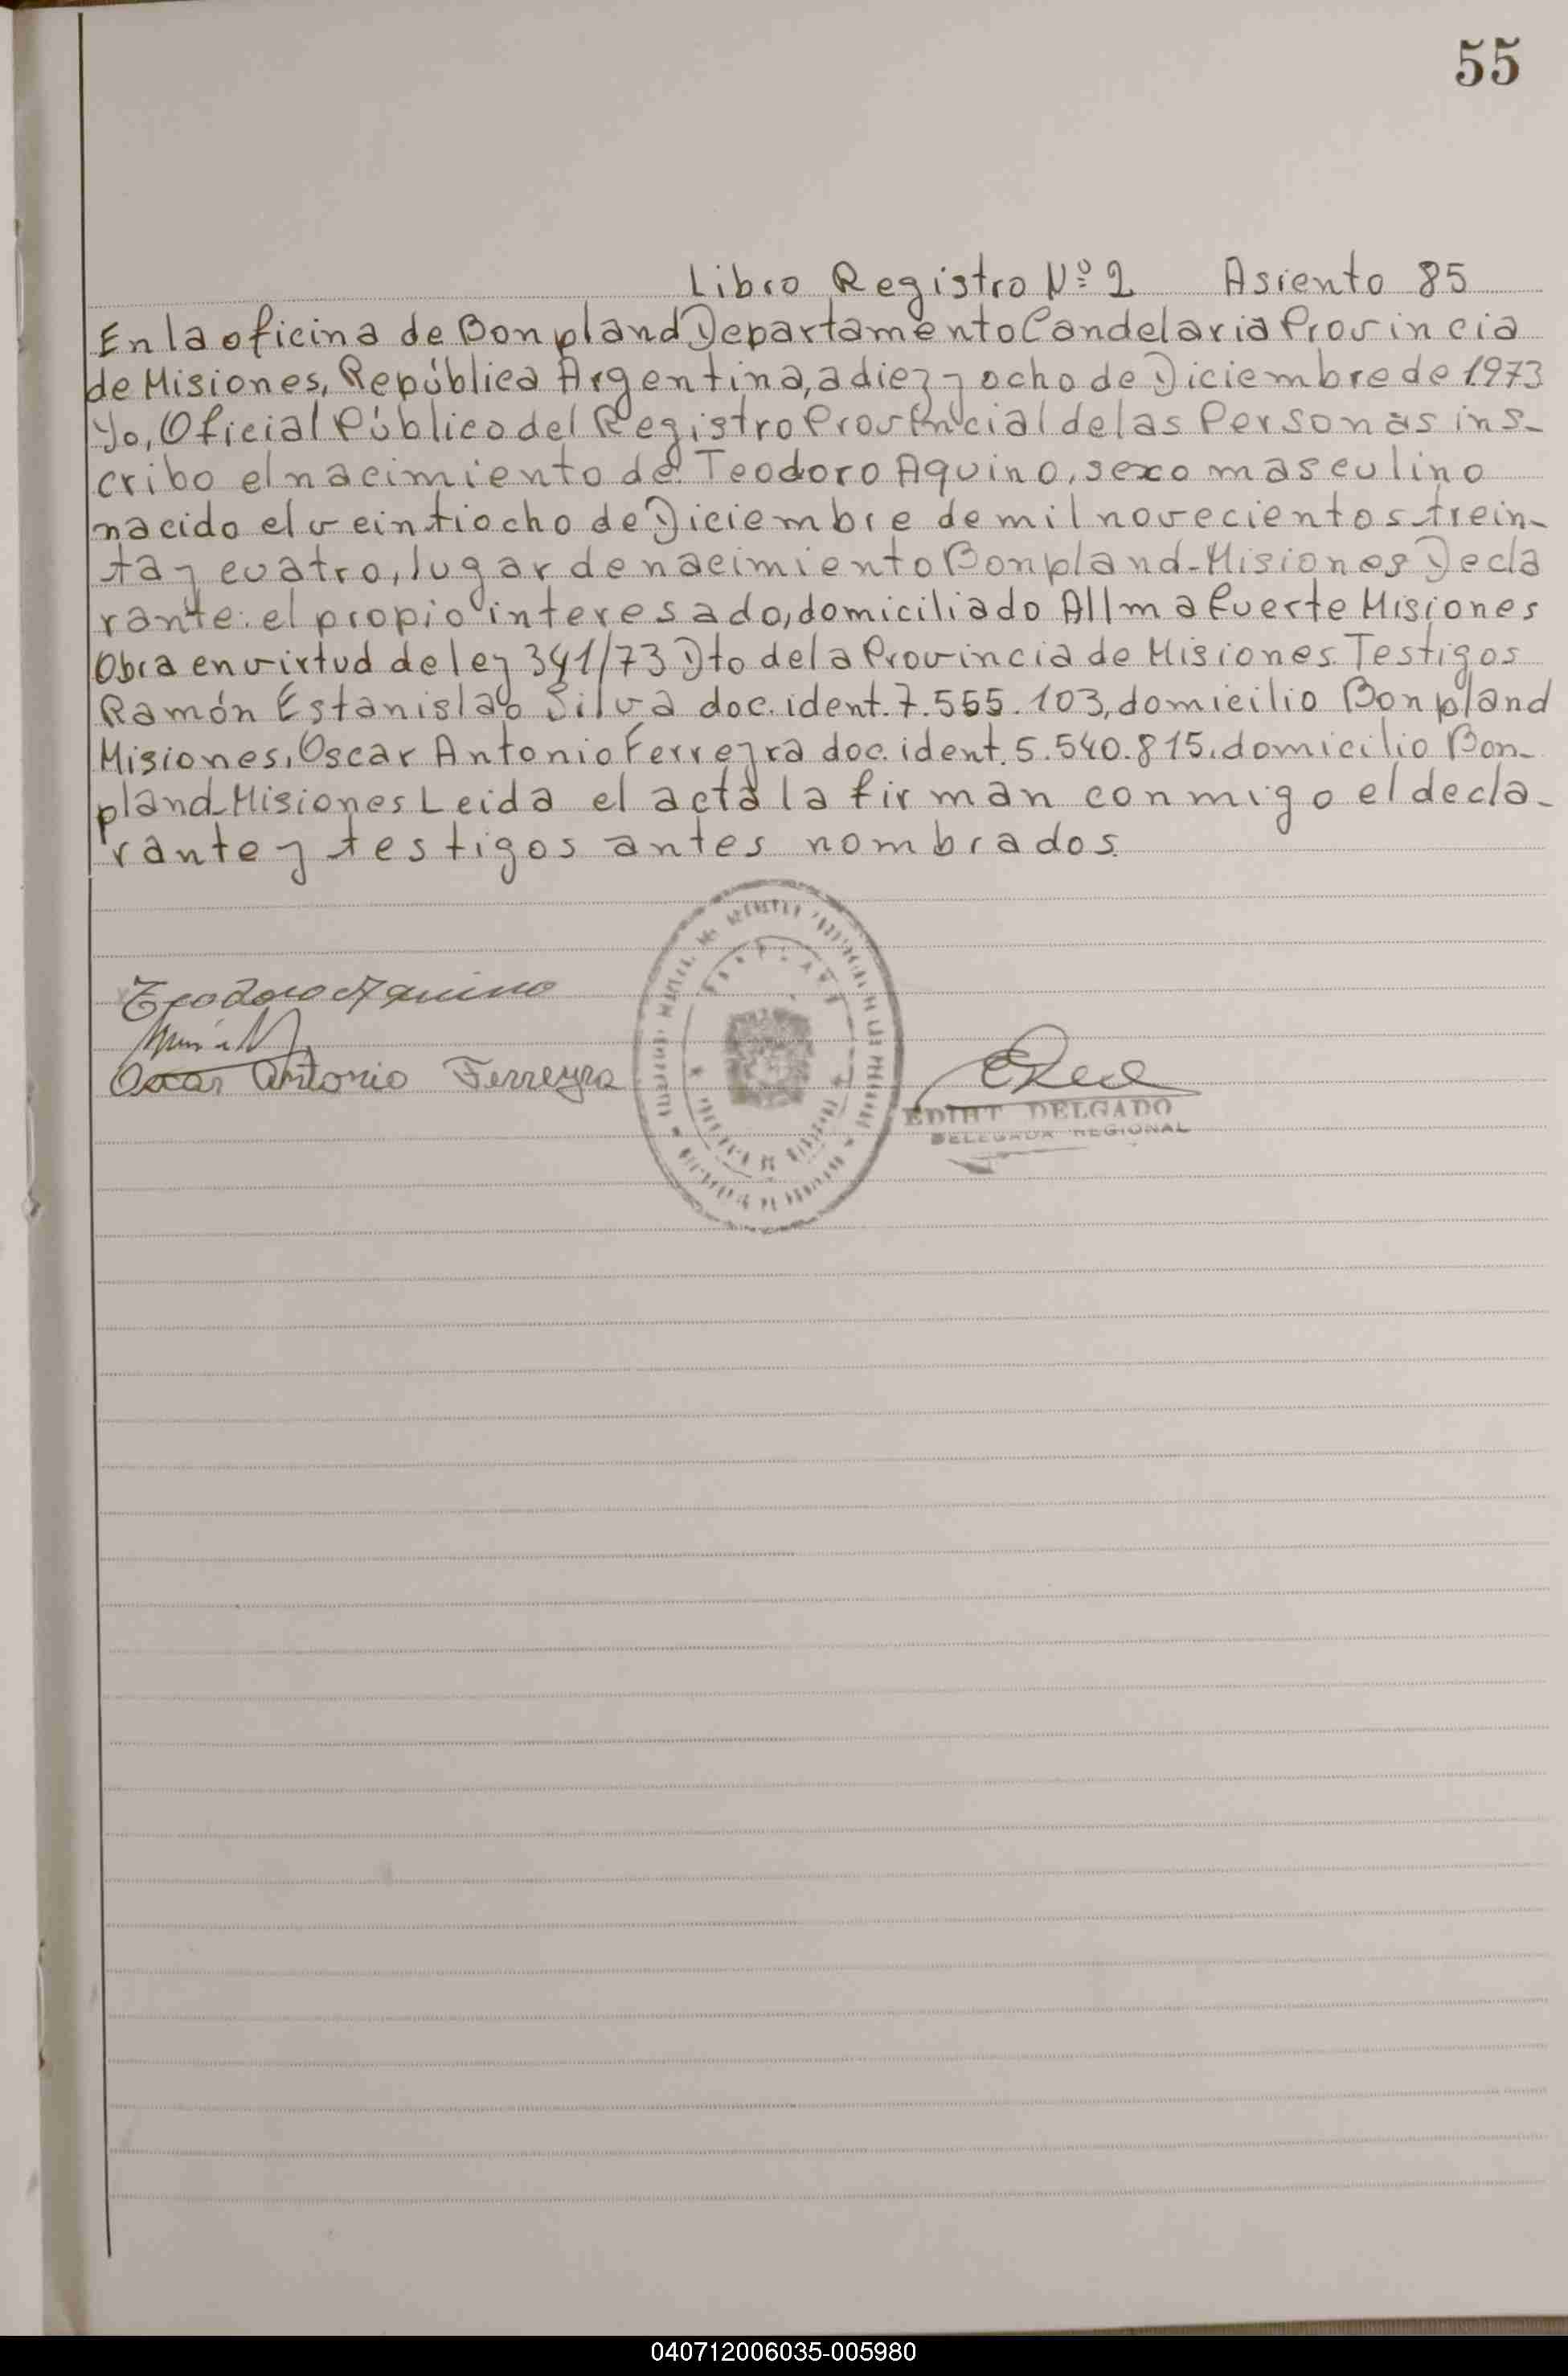 55
Libro Registro Nº 2 Asiento 85
En la oficina de Bonpland Departamento Candelaria Provincia
de Misiones, República Argentina, a diez y ocho de Diciembre de 1973
Yo, Oficial Público del Registro Provincial de las Personas ins-
cribo el nacimiento de: Teodoro Aquino, sexo masculino
nacido el veintiocho de Diciembre de mil novecientos trein-
ta y cuatro, lugar de nacimiento Bonpland-Misiones Decla
rante: el propio interesado, domiciliado Allma fuerte Misiones
Obra en virtud de ley 341/73 Dto de la Provincia de Misiones. Testigos
Ramón Estanislao Silva doc. ident. 7.555.103, domicilio Bonpland
Misiones, Oscar Antonio Ferreyra doc. ident. 5.540.815. domicilio Bon-
pland-Misiones Leida el acta la firman conmigo el decla-
rante y testigos antes nombrados.
Teodoro Aquino
Oscar Antonio Ferreyra
EDIHT DELGADO
DELEGADA REGIONAL
040712006035-005980